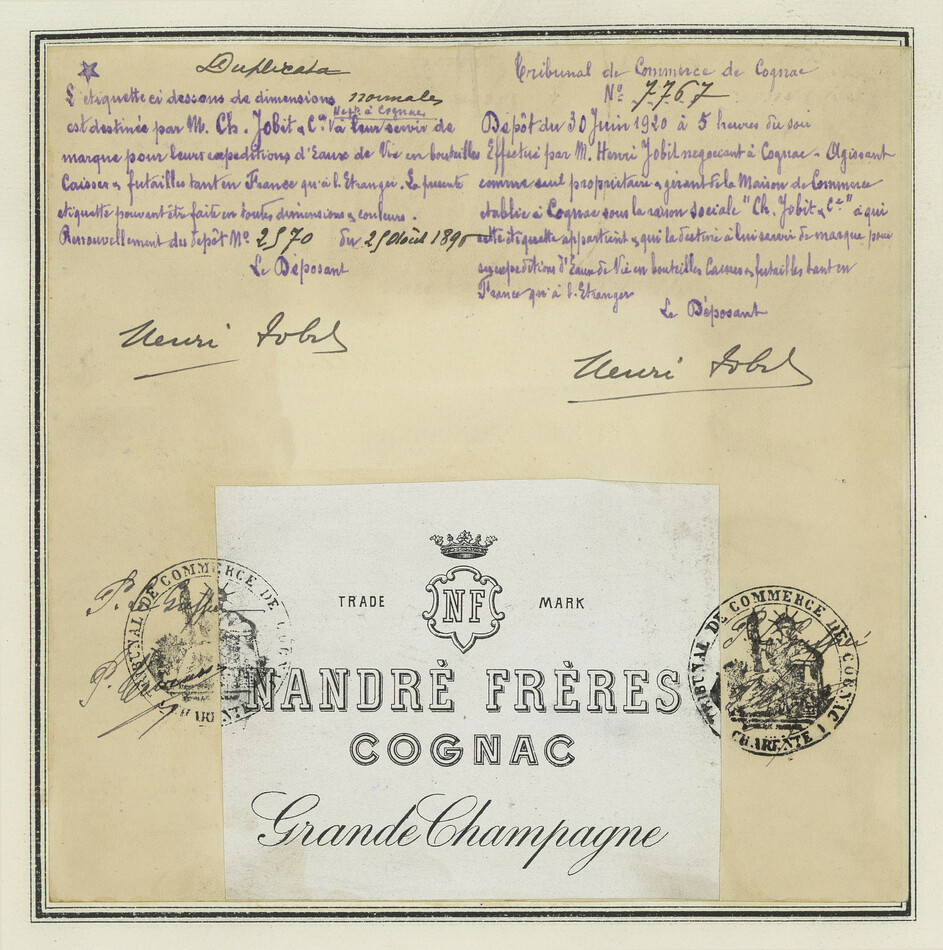 Duplicata
L'etiquette ci dessous de dimensions normales
est destinée par M. Ch. Jobit & Cie Negts à Cognac à leur servir de
marque pour leurs expeditions d'Eaux de Vie en bouteilles
Caisses & futailles tant en France qu'à l'Etranger. La presente
etiquette pouvant être faite en toutes dimensions & couleurs.
Renouvellement du depôt No 2570 du 25 Août 1890
Le Déposant
Henri Jobit
Tribunal de Commerce de Cognac
No 7767
Depôt du 30 Juin 1920 à 5 heures du soir
Effectué par M. Henri Jobit negociant à Cognac - Agissant
comme seul propriétaire & gérant de la Maison de Commerce
etablie à Cognac sous la raison sociale "Ch. Jobit & Cie" à qui
cette étiquette appartient & qui la destine à lui servir de marque pour
ses expeditions d'Eaux de Vie en bouteilles Caisses & futailles tant en
France qu'à l'Etranger
Le Déposant
Henri Jobit
TRIBUNAL DE COMMERCE DE COGNAC
CHARENTE
TRADE NF MARK
NANDRÉ FRÈRES
COGNAC
Grande Champagne
TRIBUNAL DE COMMERCE DE COGNAC
CHARENTE